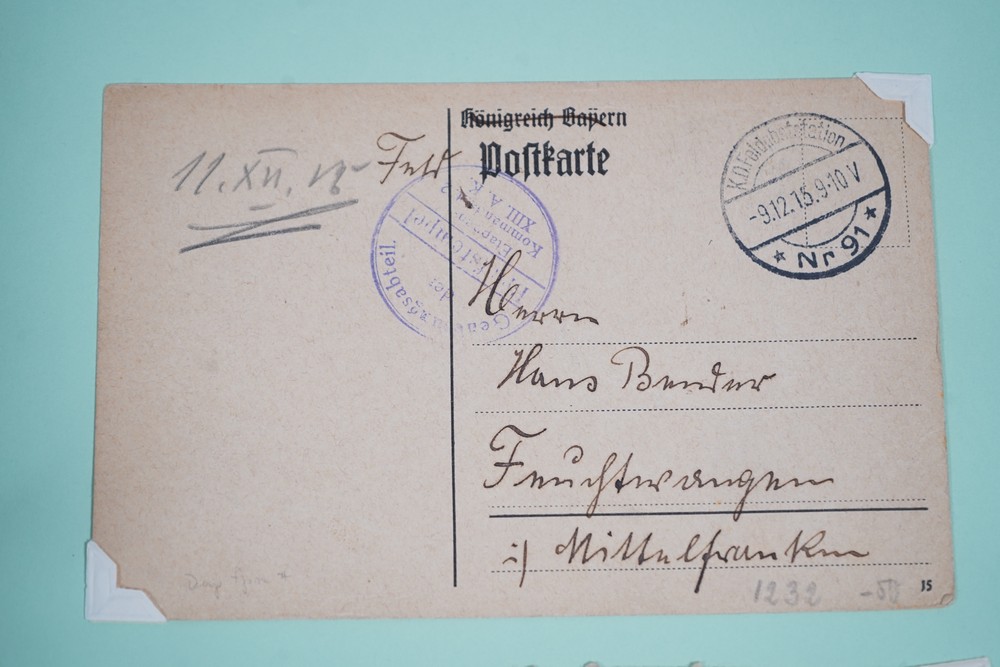 Königreich Bayern
Feld Postkarte
11. XII. 15
K.D.Feldpoststation
-9.12.15.9-10 V
* Nr 91 *
XIII. A. K.
Etappen
Briefstempel
der
abteil.
Herrn
Hans Bender
Feuchtwangen
i/ Mittelfranken
1232 -50
15